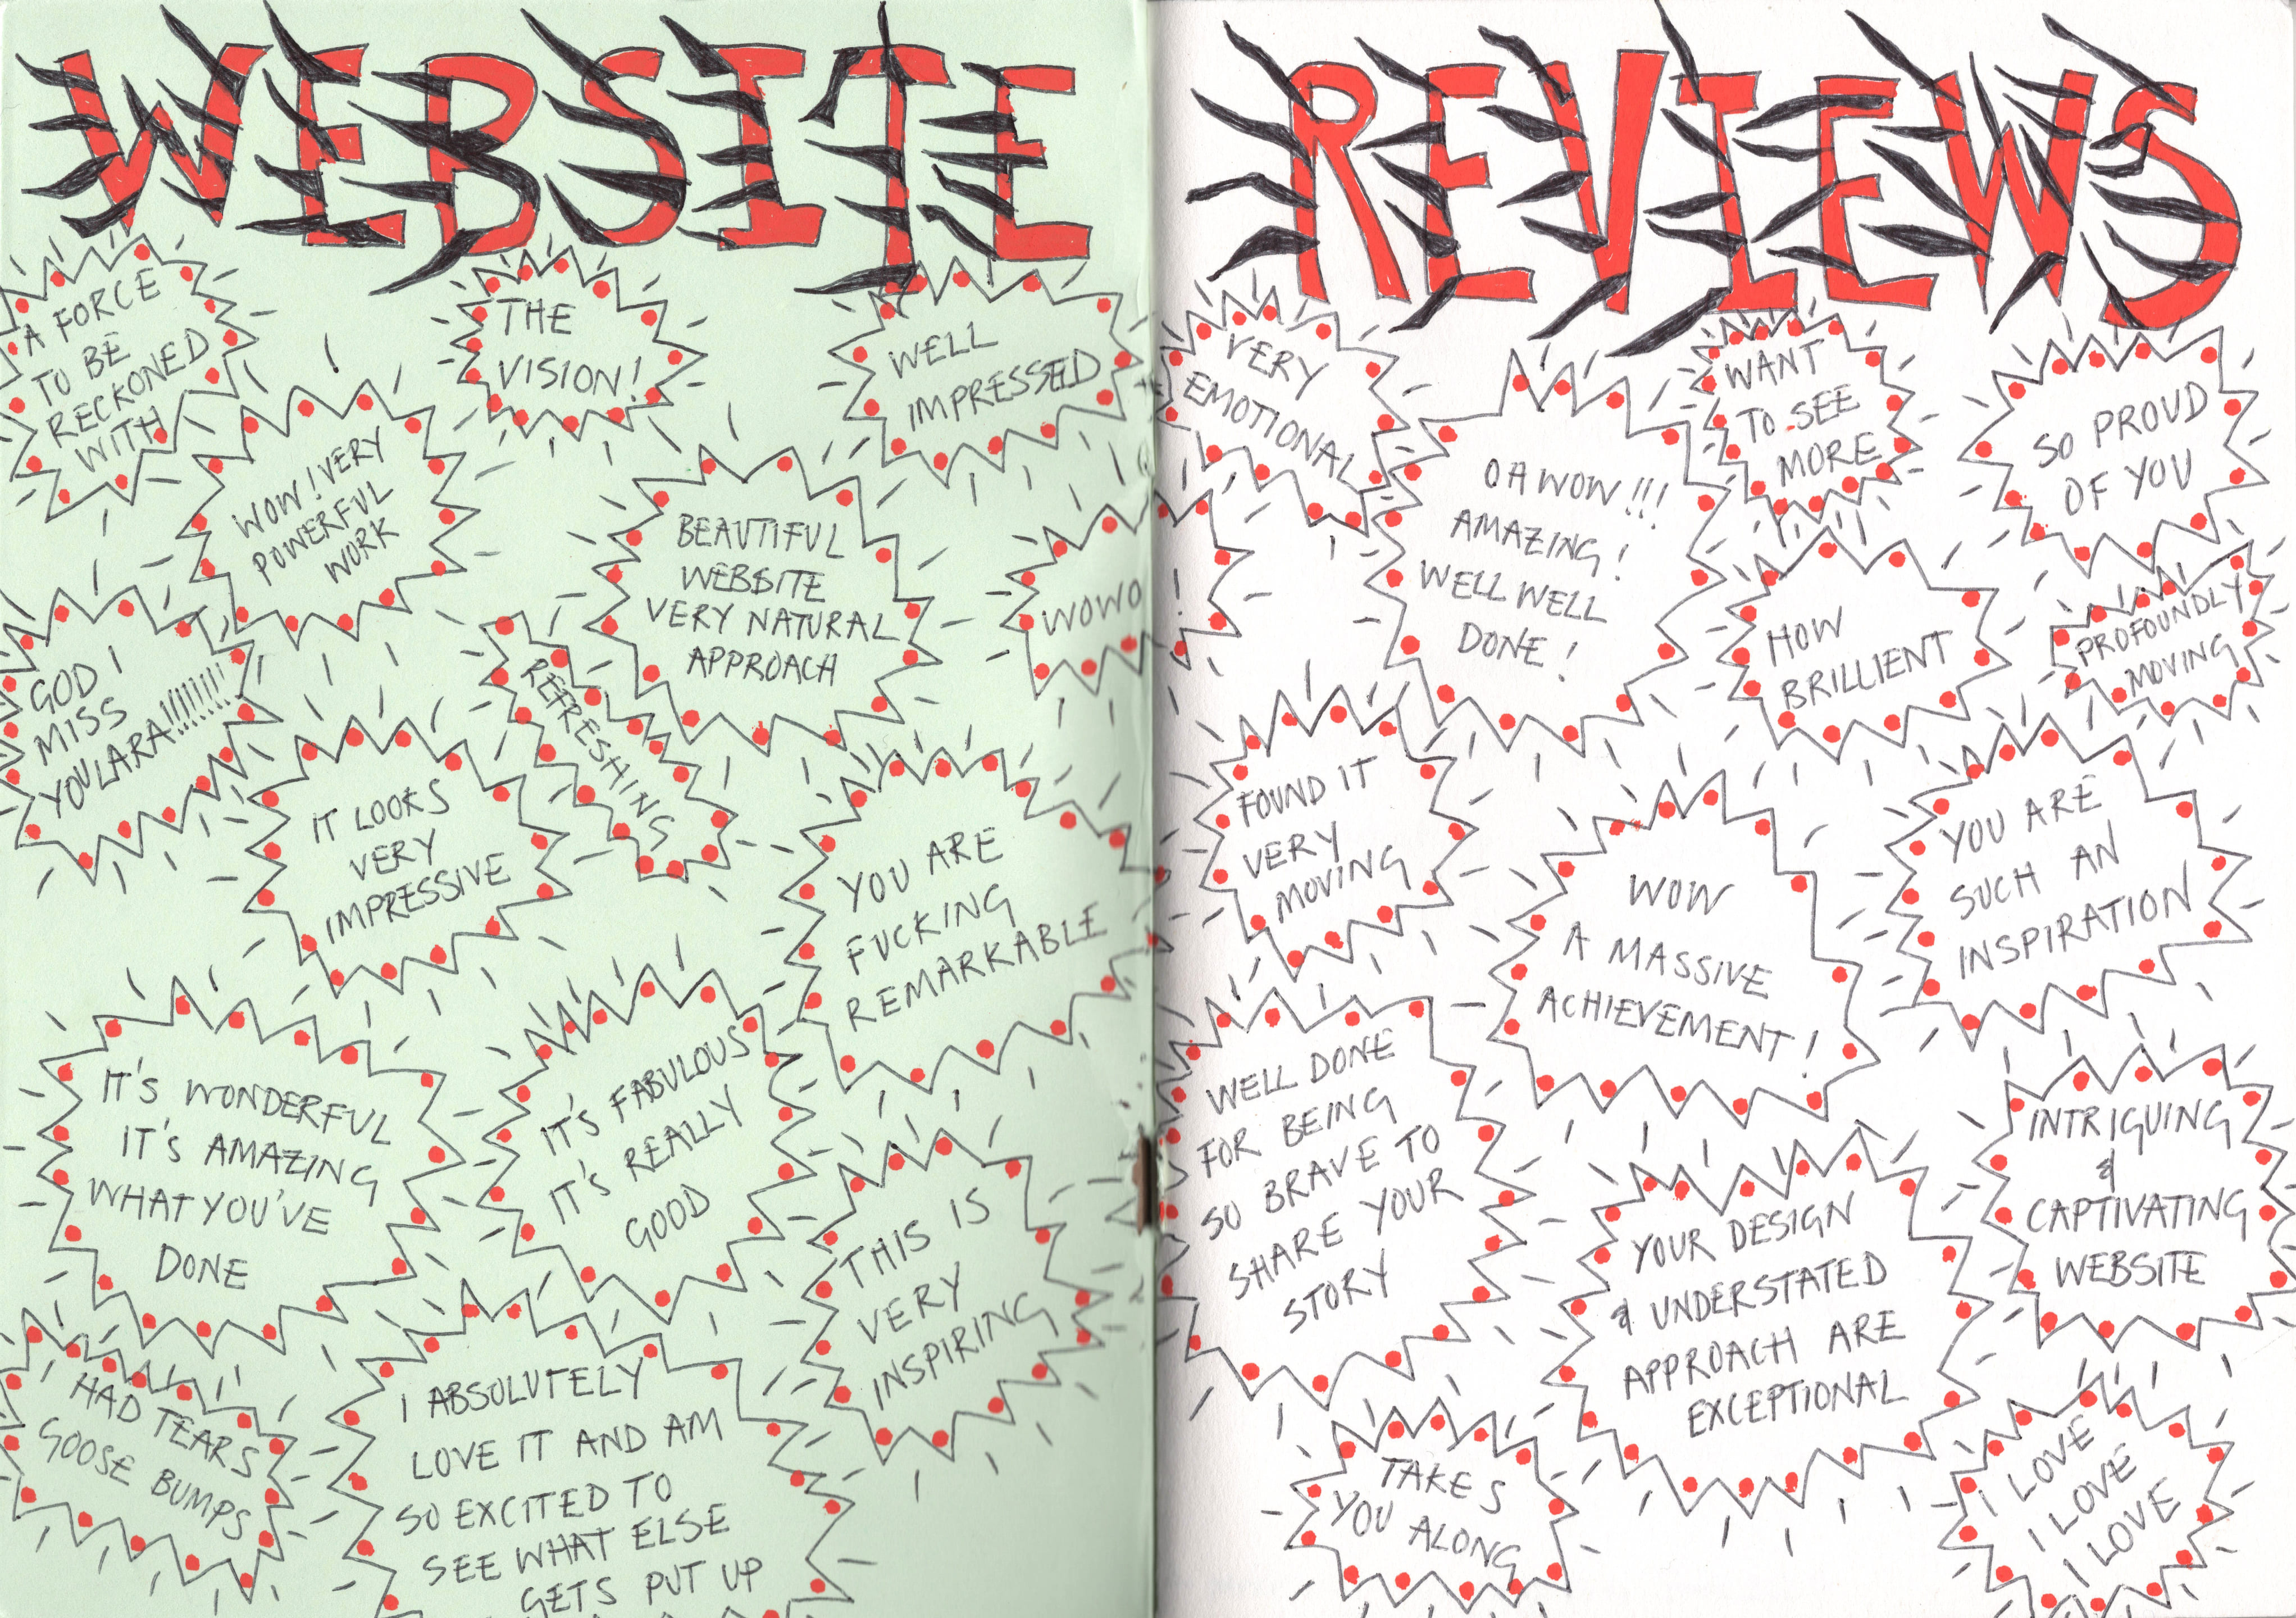 WEBSITE
A FORCE
TO BE
RECKONED
WITH
THE
VISION!
WELL
IMPRESSED
WOW! VERY
POWERFUL
WORK
BEAUTIFUL
WEBSITE
VERY NATURAL
APPROACH
WOWO!
GOD I
MISS
YOU LARA!!!!!!!!!
REFRESHING
IT LOOKS
VERY
IMPRESSIVE
YOU ARE
FUCKING
REMARKABLE
IT'S WONDERFUL
IT'S AMAZING
WHAT YOU'VE
DONE
IT'S FABULOUS
IT'S REALLY
GOOD
THIS IS
VERY
INSPIRING
HAD TEARS
GOOSE BUMPS
I ABSOLUTELY
LOVE IT AND AM
SO EXCITED TO
SEE WHAT ELSE
GETS PUT UP
REVIEWS
VERY
EMOTIONAL
OH WOW!!!
AMAZING!
WELL WELL
DONE!
WANT
TO SEE
MORE
SO PROUD
OF YOU
HOW
BRILLIENT
PROFOUNDLY
MOVING
FOUND IT
VERY
MOVING
WOW
A MASSIVE
ACHIEVEMENT!
YOU ARE
SUCH AN
INSPIRATION
WELL DONE
FOR BEING
SO BRAVE TO
SHARE YOUR
STORY
YOUR DESIGN
& UNDERSTATED
APPROACH ARE
EXCEPTIONAL
INTRIGUING
&
CAPTIVATING
WEBSITE
TAKES
YOU ALONG
I LOVE
I LOVE
I LOVE